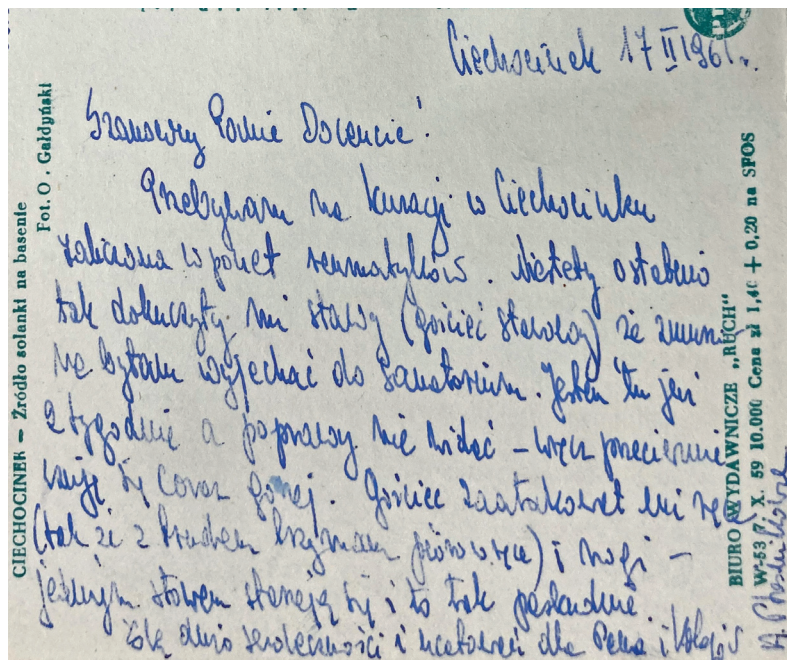 Ciechocinek 17 II 1961 r.
Szanowny Panie Docencie!
Przebywam na kuracji w Ciechocinku
zaliczona w poczet reumatyków. Niestety ostatnio
tak dokuczyły mi stawy (gościec stawowy) że zmuszo
na byłam wyjechać do sanatorium. Jestem tu już
2 tygodnie a poprawy nie widać – wręcz przeciwnie
czuję się coraz gorzej. Gościec zaatakował mi ręce
(tak że z trudem trzymam pióro w ręce) i nogi –
jednym słowem starzeję się i to tak paskudnie.
Łączę dużo serdeczności i ucałowań dla Pana i
CIECHOCINEK – Źródło solanki na basenie
Fot. O. Gałdyński
BIURO WYDAWNICZE „RUCH”
W-53 7. X. 59 10.000 Cena zł 1,40 + 0,20 na SPOS